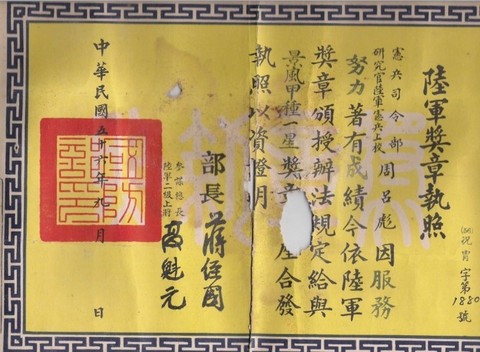 陸軍獎章執照
(56)祝胄字第1880號
憲兵司令部
研究官陸軍憲兵上校周呂彪因服務
努力著有成績今依陸軍
獎章頒授辦法規定給與
景風甲種一星獎章一座合發
執照以資證明
部長 蔣經國
參謀總長
陸軍二級上將 高魁元
中華民國五十六年九月 日